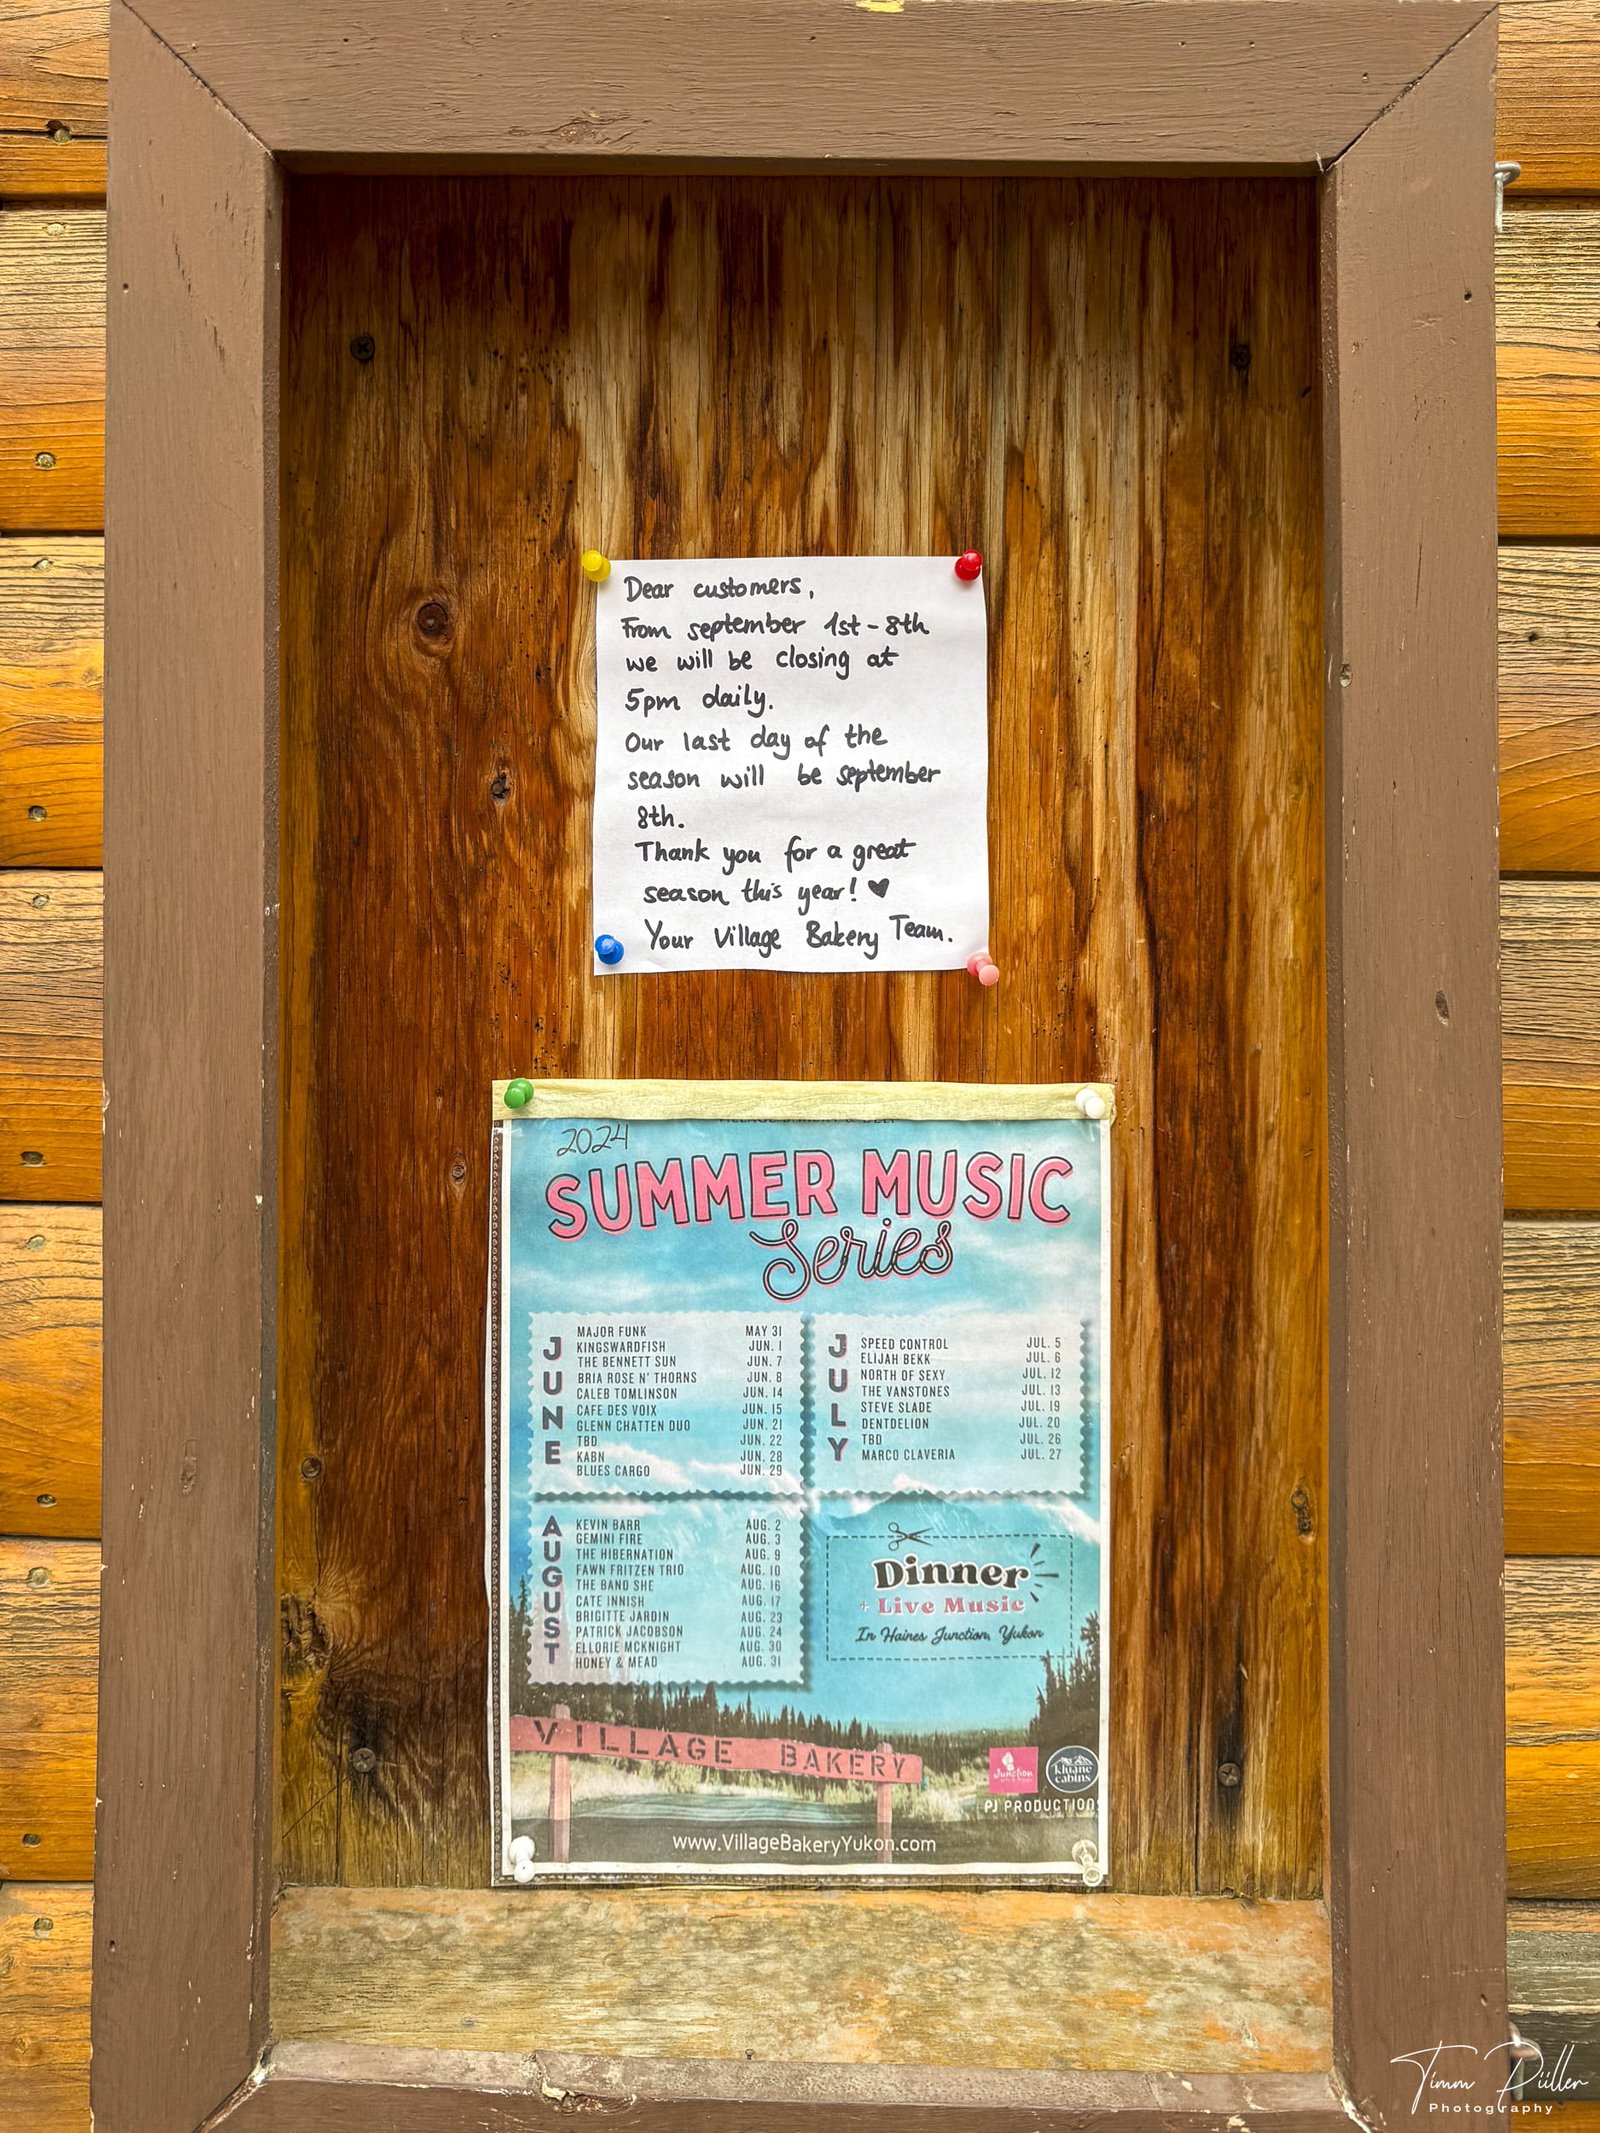 Dear customers,
From september 1st - 8th
we will be closing at
5pm daily.
Our last day of the
season will be september
8th.
Thank you for a great
season this year! ♥
Your Village Bakery Team.
2024
SUMMER MUSIC
Series
JUNE
MAJOR FUNK MAY 31
KINGSWARDFISH JUN. 1
THE BENNETT SUN JUN. 7
BRIA ROSE N' THORNS JUN. 8
CALEB TOMLINSON JUN. 14
CAFE DES VOIX JUN. 15
GLENN CHATTEN DUO JUN. 21
TBD JUN. 22
KABN JUN. 28
BLUES CARGO JUN. 29
JULY
SPEED CONTROL JUL. 5
ELIJAH BEKK JUL. 6
NORTH OF SEXY JUL. 12
THE VANSTONES JUL. 13
STEVE SLADE JUL. 19
DENTDELION JUL. 20
TBD JUL. 26
MARCO CLAVERIA JUL. 27
AUGUST
KEVIN BARR AUG. 2
GEMINI FIRE AUG. 3
THE HIBERNATION AUG. 9
FAWN FRITZEN TRIO AUG. 10
THE BAND SHE AUG. 16
CATE INNISH AUG. 17
BRIGITTE JARDIN AUG. 23
PATRICK JACOBSON AUG. 24
ELLORIE MCKNIGHT AUG. 30
HONEY & MEAD AUG. 31
Dinner
+ Live Music
In Haines Junction, Yukon
VILLAGE BAKERY
Junction
kluane
cabins
PJ PRODUCTIONS
www.VillageBakeryYukon.com
Timm Püller
Photography